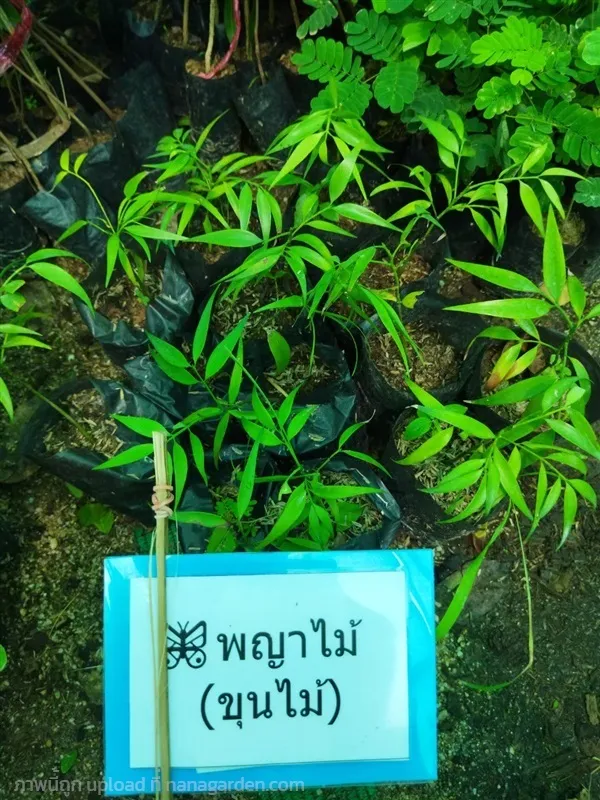 พญาไม้
(ขุนไม้)
ภาพนี้ถูก upload ที่ nanagarden.com